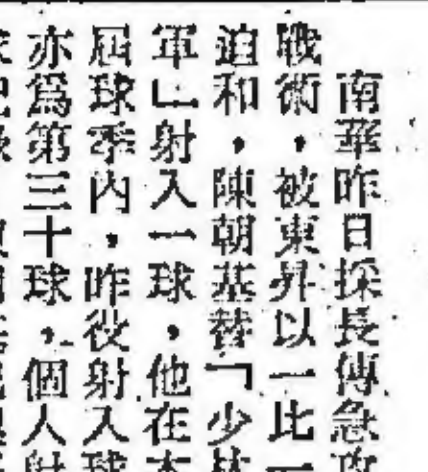 南華昨日採長傳急攻
戰術，被東昇以一比一
迫和，陳朝基替「少林
軍」射入一球，他在本
屆球季內，昨役射入球
亦爲第三十球，個人射